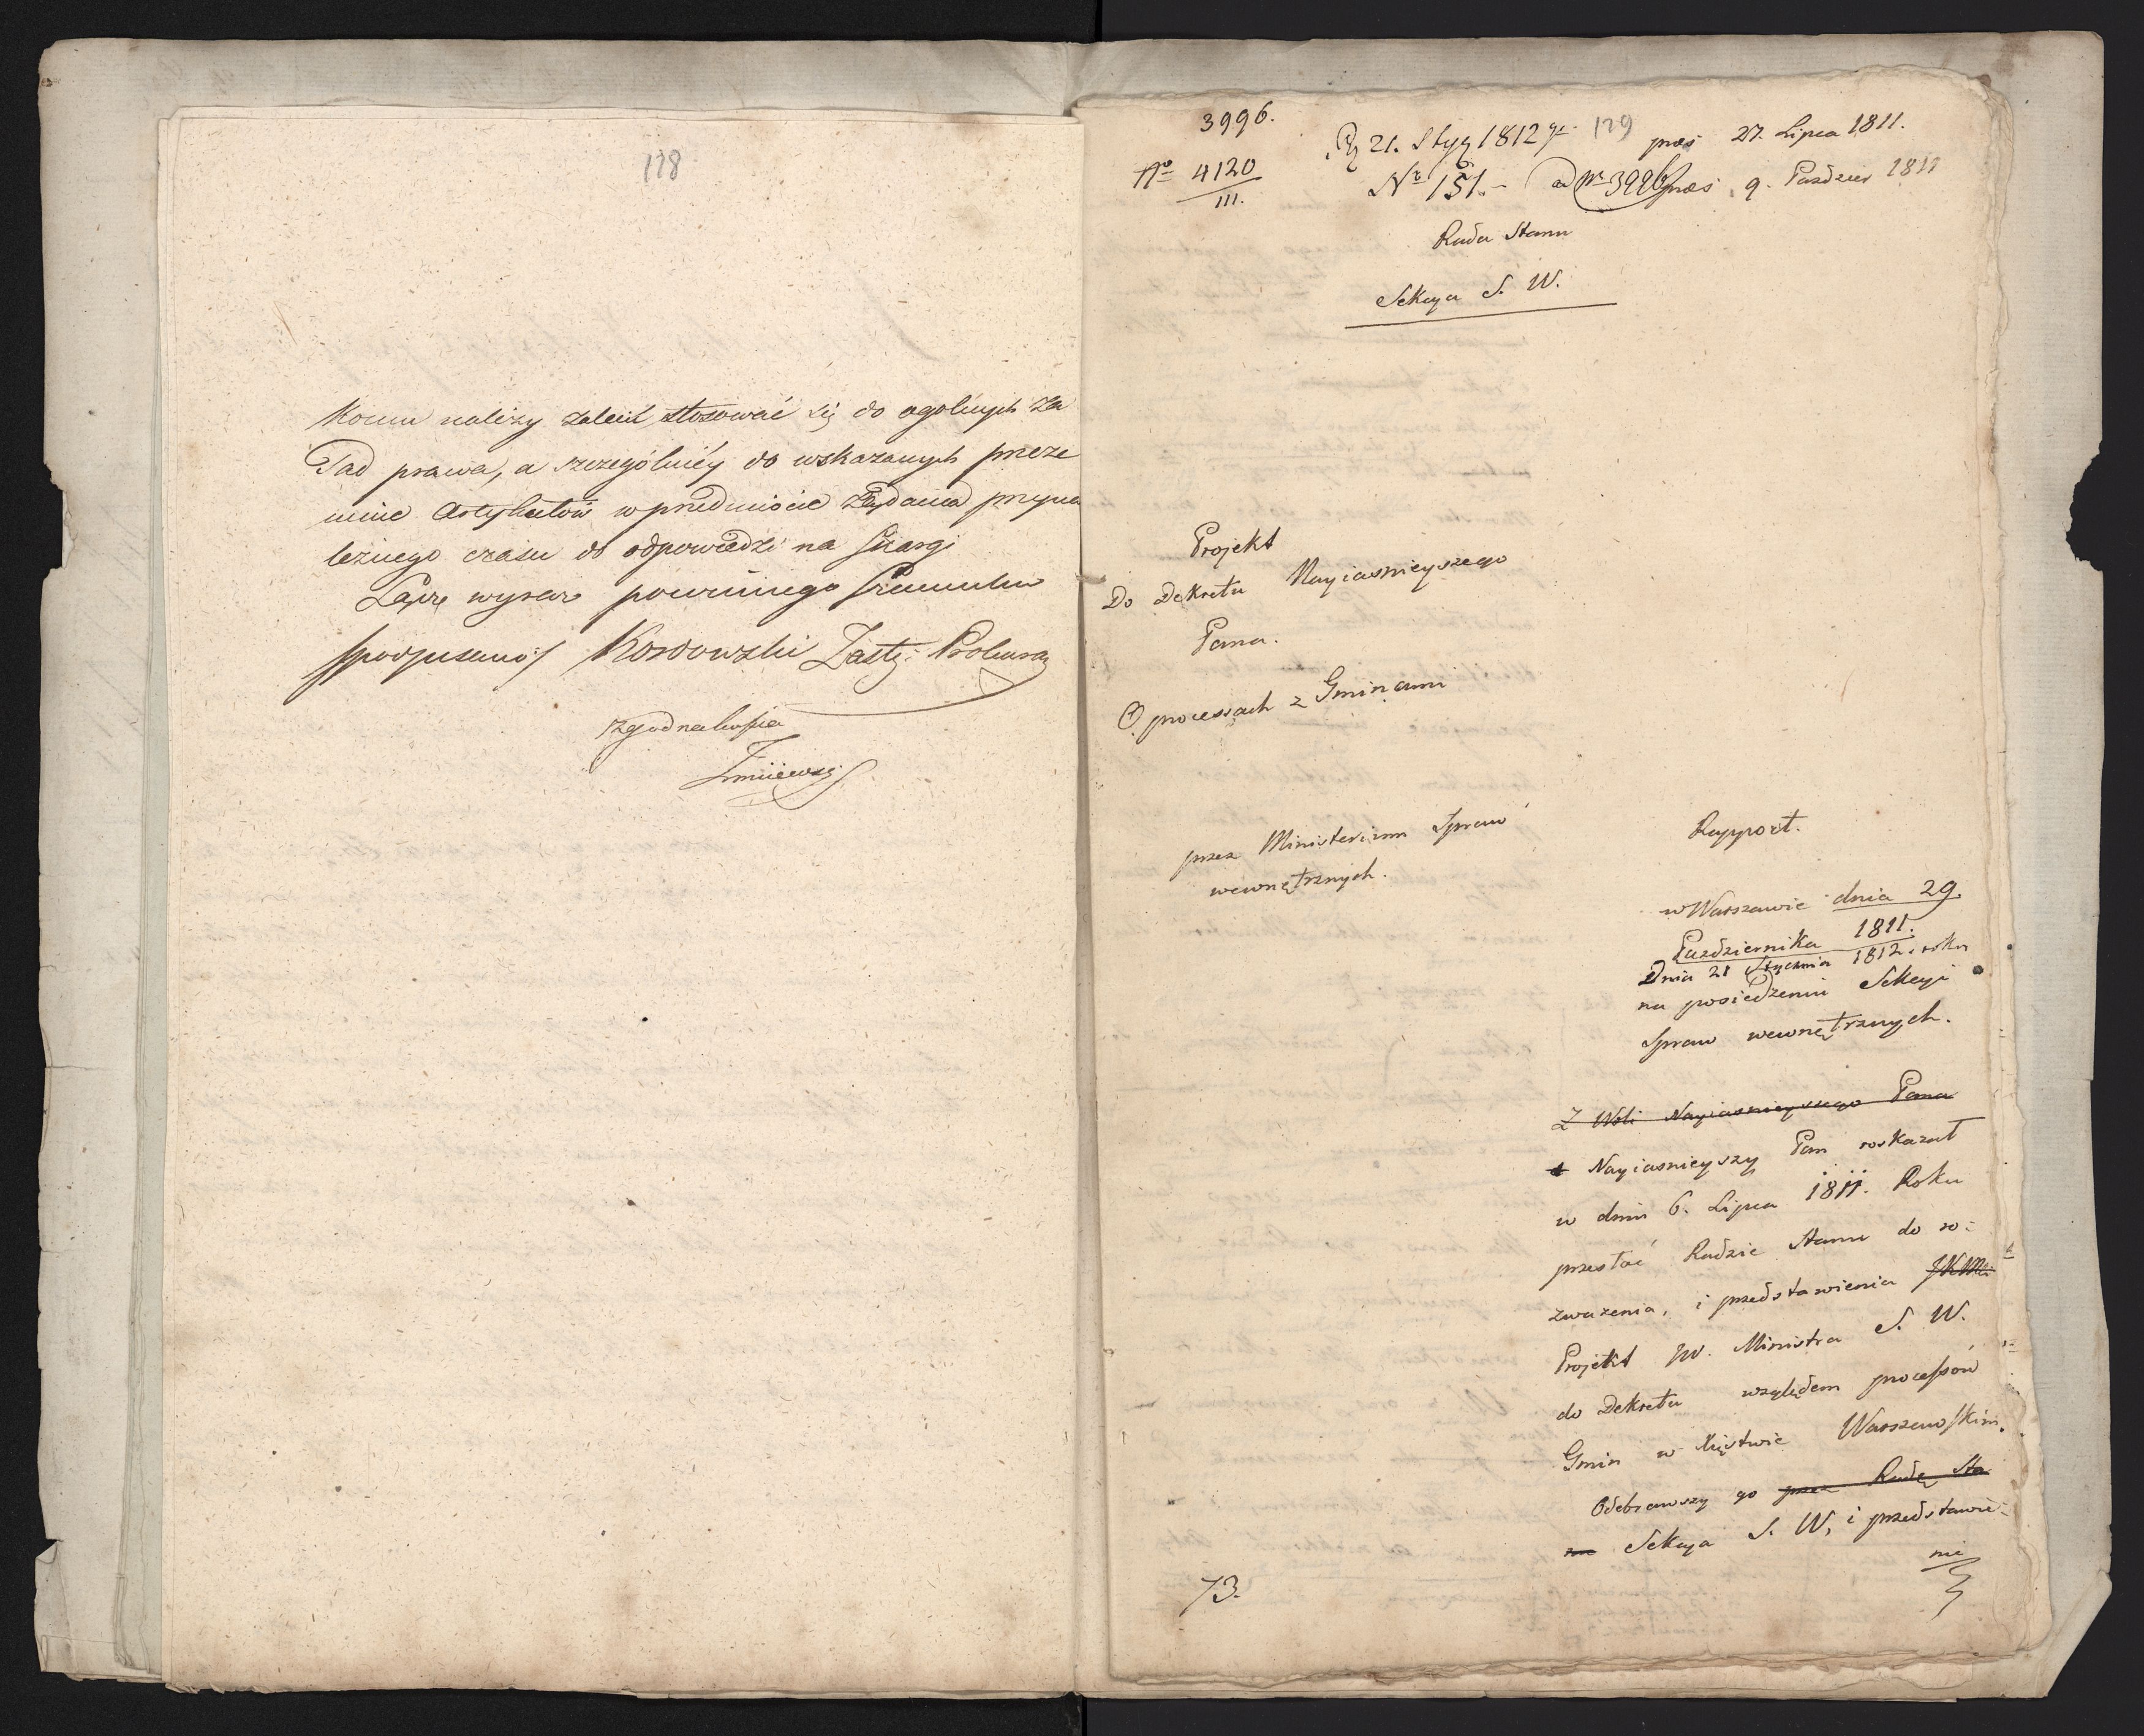 118
Komu należy zalecił stosować się do ogolnych Za
sad prawa, a szczególniéy do wskazanych przeze
mnie Artykułów w przedmiocie żądania przyna
leżnego czasu do odpowiedzi na Skargi
Łączę wyraz powinnego Szacunku
/podpisano/ Kossowski Zastę: Prokura
zgodna kopia
Żmiiewski
3996.
No 4120
III.
21. Stycz 1812 129
Nr 151.- ad Nr 3996
præs 27. Lipca 1811.
præs 9. Paździer 1811
Rada Stanu
Sekcya S. W.
Projekt
Do Dekretu Nayiasnieyszego
Pana.
O processach z Gminami
przez Ministerium Spraw
wewnętrznych.
Rapport.
w Warszawie dnia 29.
Pazdziernika 1811.
Dnia 21 Stycznia 1812. roku
na posiedzeniu Sekcyi
Spraw wewnętrznych.
Z Woli Nayiasnieyszego Pana
Nayiasnieyszy Pan roskazał
w dniu 6. Lipca 1811. Roku
przesłać Radzie Stanu do ro:
zważenia, i przedstawienia JKMci
Projekt JW. Ministra S. W.
do Dekretu względem processów
Gmin w Xięstwie Warszawskim.
Odebrawszy go przez Radę Sta
nu Sekcya S. W, i przedstawie:
nie
73.